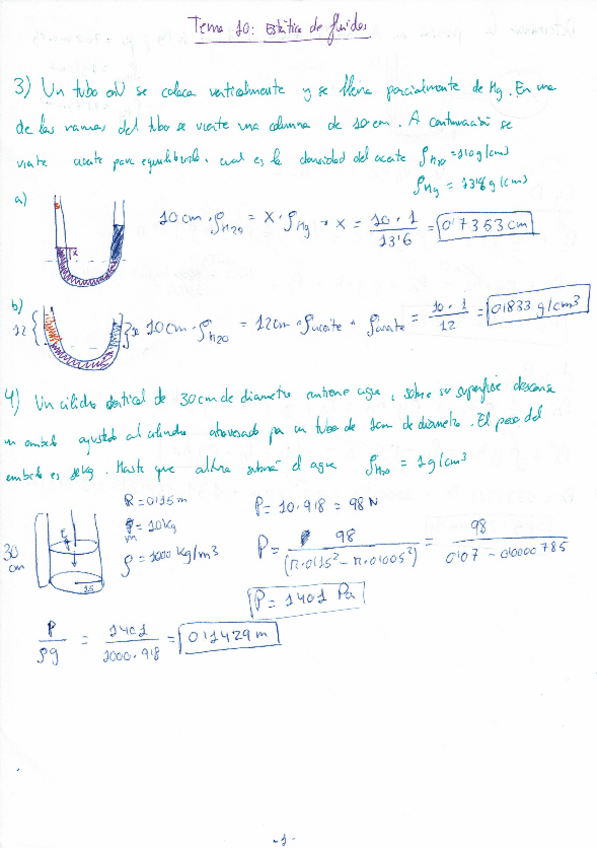 Tema 10: Estática de fluidos
3) Un tubo en U se coloca verticalmente y se llena parcialmente de Hg. En una
de las ramas del tubo se vierte una columna de 10 cm. A continuación se
vierte aceite para equilibrarlo. cual es la densidad del aceite ρH2O = 1'0 g/cm3
ρHg = 13'6 g/cm3
a)
10 cm · ρH2O = X · ρHg → X = 10 · 1 / 13'6 = 0'7353 cm
x
b)
12 { } 10 cm · ρH2O = 12 cm · ρaceite → ρaceite = 10 · 1 / 12 = 0'833 g/cm3
4) Un cilindro vertical de 30 cm de diametro contiene agua, sobre su superficie descansa
un embolo ajustado al cilindro atravesado por un tubo de 1cm de diametro. El peso del
embolo es 10kg. Hasta que altura subirá el agua ρH2O = 1 g/cm3
R = 0'15 m
m = 10 kg
ρ = 1000 kg/m3
30 cm
15
P = 10 · 9'8 = 98 N
P = 98 / (π · 0'15² − π · 0'005²) = 98 / 0'07 − 0'0000785
P = 1401 Pa
P / ρg = 1401 / 1000 · 9'8 = 0'1429 m
- 1 -